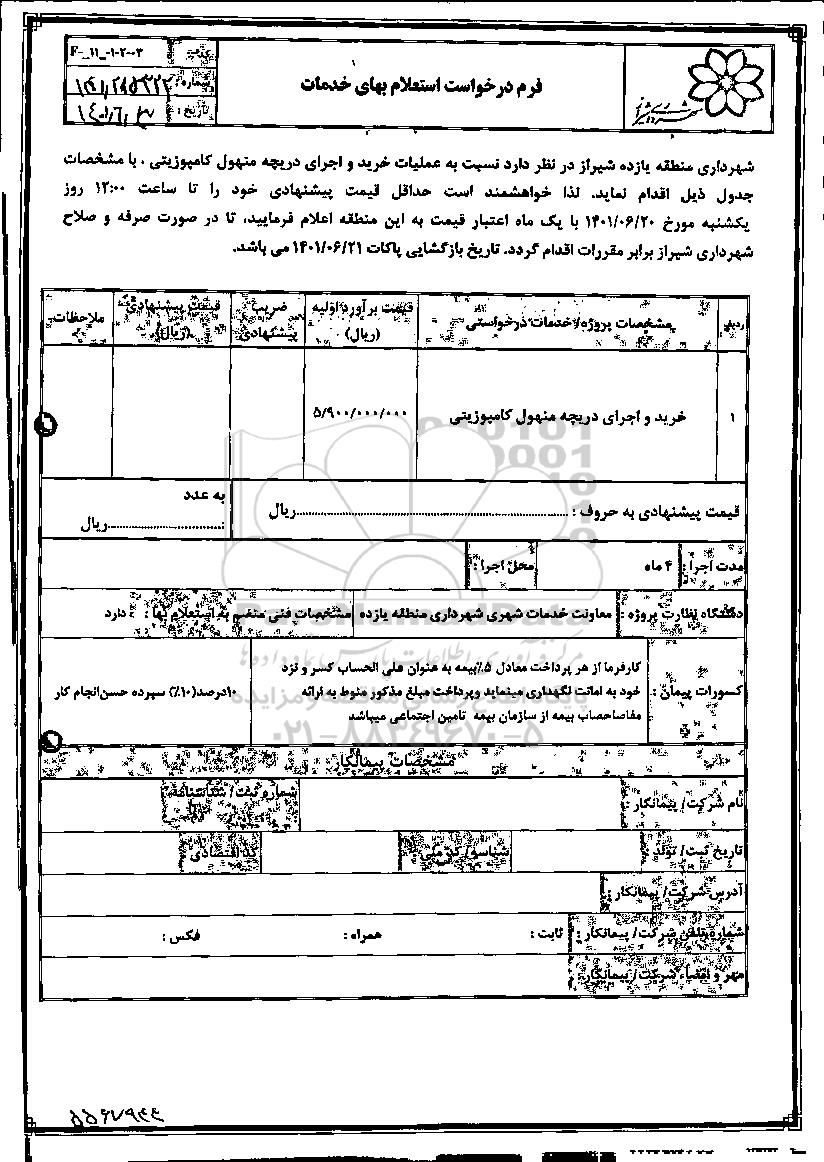 فرم درخواست استعلام بهای خدمات
F-_11_-1-2-03
شهرداری منطقه یازده شیراز در نظر دارد نسبت به عملیات خرید و اجرای دریچه منهول کامپوزیتی ، با مشخصات
جدول ذیل اقدام نماید. لذا خواهشمند است حداقل قیمت پیشنهادی خود را تا ساعت ۱۲:۰۰ روز
یکشنبه مورخ ۱۴۰۱/۰۶/۲۰ با یک ماه اعتبار قیمت به این منطقه اعلام فرمایید، تا در صورت صرفه و صلاح
شهرداری شیراز برابر مقررات اقدام گردد. تاریخ بازگشایی پاکات ۱۴۰۱/۰۶/۲۱ می باشد.
ردیف مشخصات پروژه/خدمات درخواستی قیمت برآورد اولیه (ریال) ضریب پیشنهادی قیمت پیشنهادی (ریال) ملاحظات
۱ خرید و اجرای دریچه منهول کامپوزیتی ۵/۹۰۰/۰۰۰/۰۰۰
قیمت پیشنهادی به حروف : ......................ریال به عدد :......................ریال
مدت اجرا : ۴ ماه محل اجرا :
دستگاه نظارت پروژه : معاونت خدمات شهری شهرداری منطقه یازده مشخصات فنی منضم به استعلام بها : دارد
کسورات پیمان :
کارفرما از هر پرداخت معادل ۵٪بیمه به عنوان علی الحساب کسر و نزد
خود به امانت نگهداری مینماید وپرداخت مبلغ مذکور منوط به ارائه
مفاصاحصاب بیمه از سازمان بیمه تامین اجتماعی میباشد
۱۰درصد(۱۰٪) سپرده حسن انجام کار
مشخصات پیمانکار
نام شرکت/ پیمانکار : شماره ثبت/ شناسنامه :
تاریخ ثبت/ تولد : شناسه/ کد ملی : کد اقتصادی :
آدرس شرکت/ پیمانکار :
شماره تلفن شرکت/ پیمانکار : ثابت : همراه : فکس :
مهر و امضاء شرکت/ پیمانکار :
۰۲۱-۸۸۳۴۹۶۷۰-۵